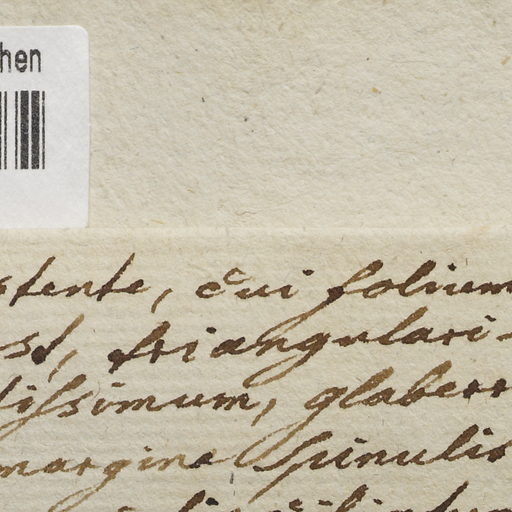 hen
stente, cui folium
st, triangulari-
tissimum, glaberr
margine spinulis